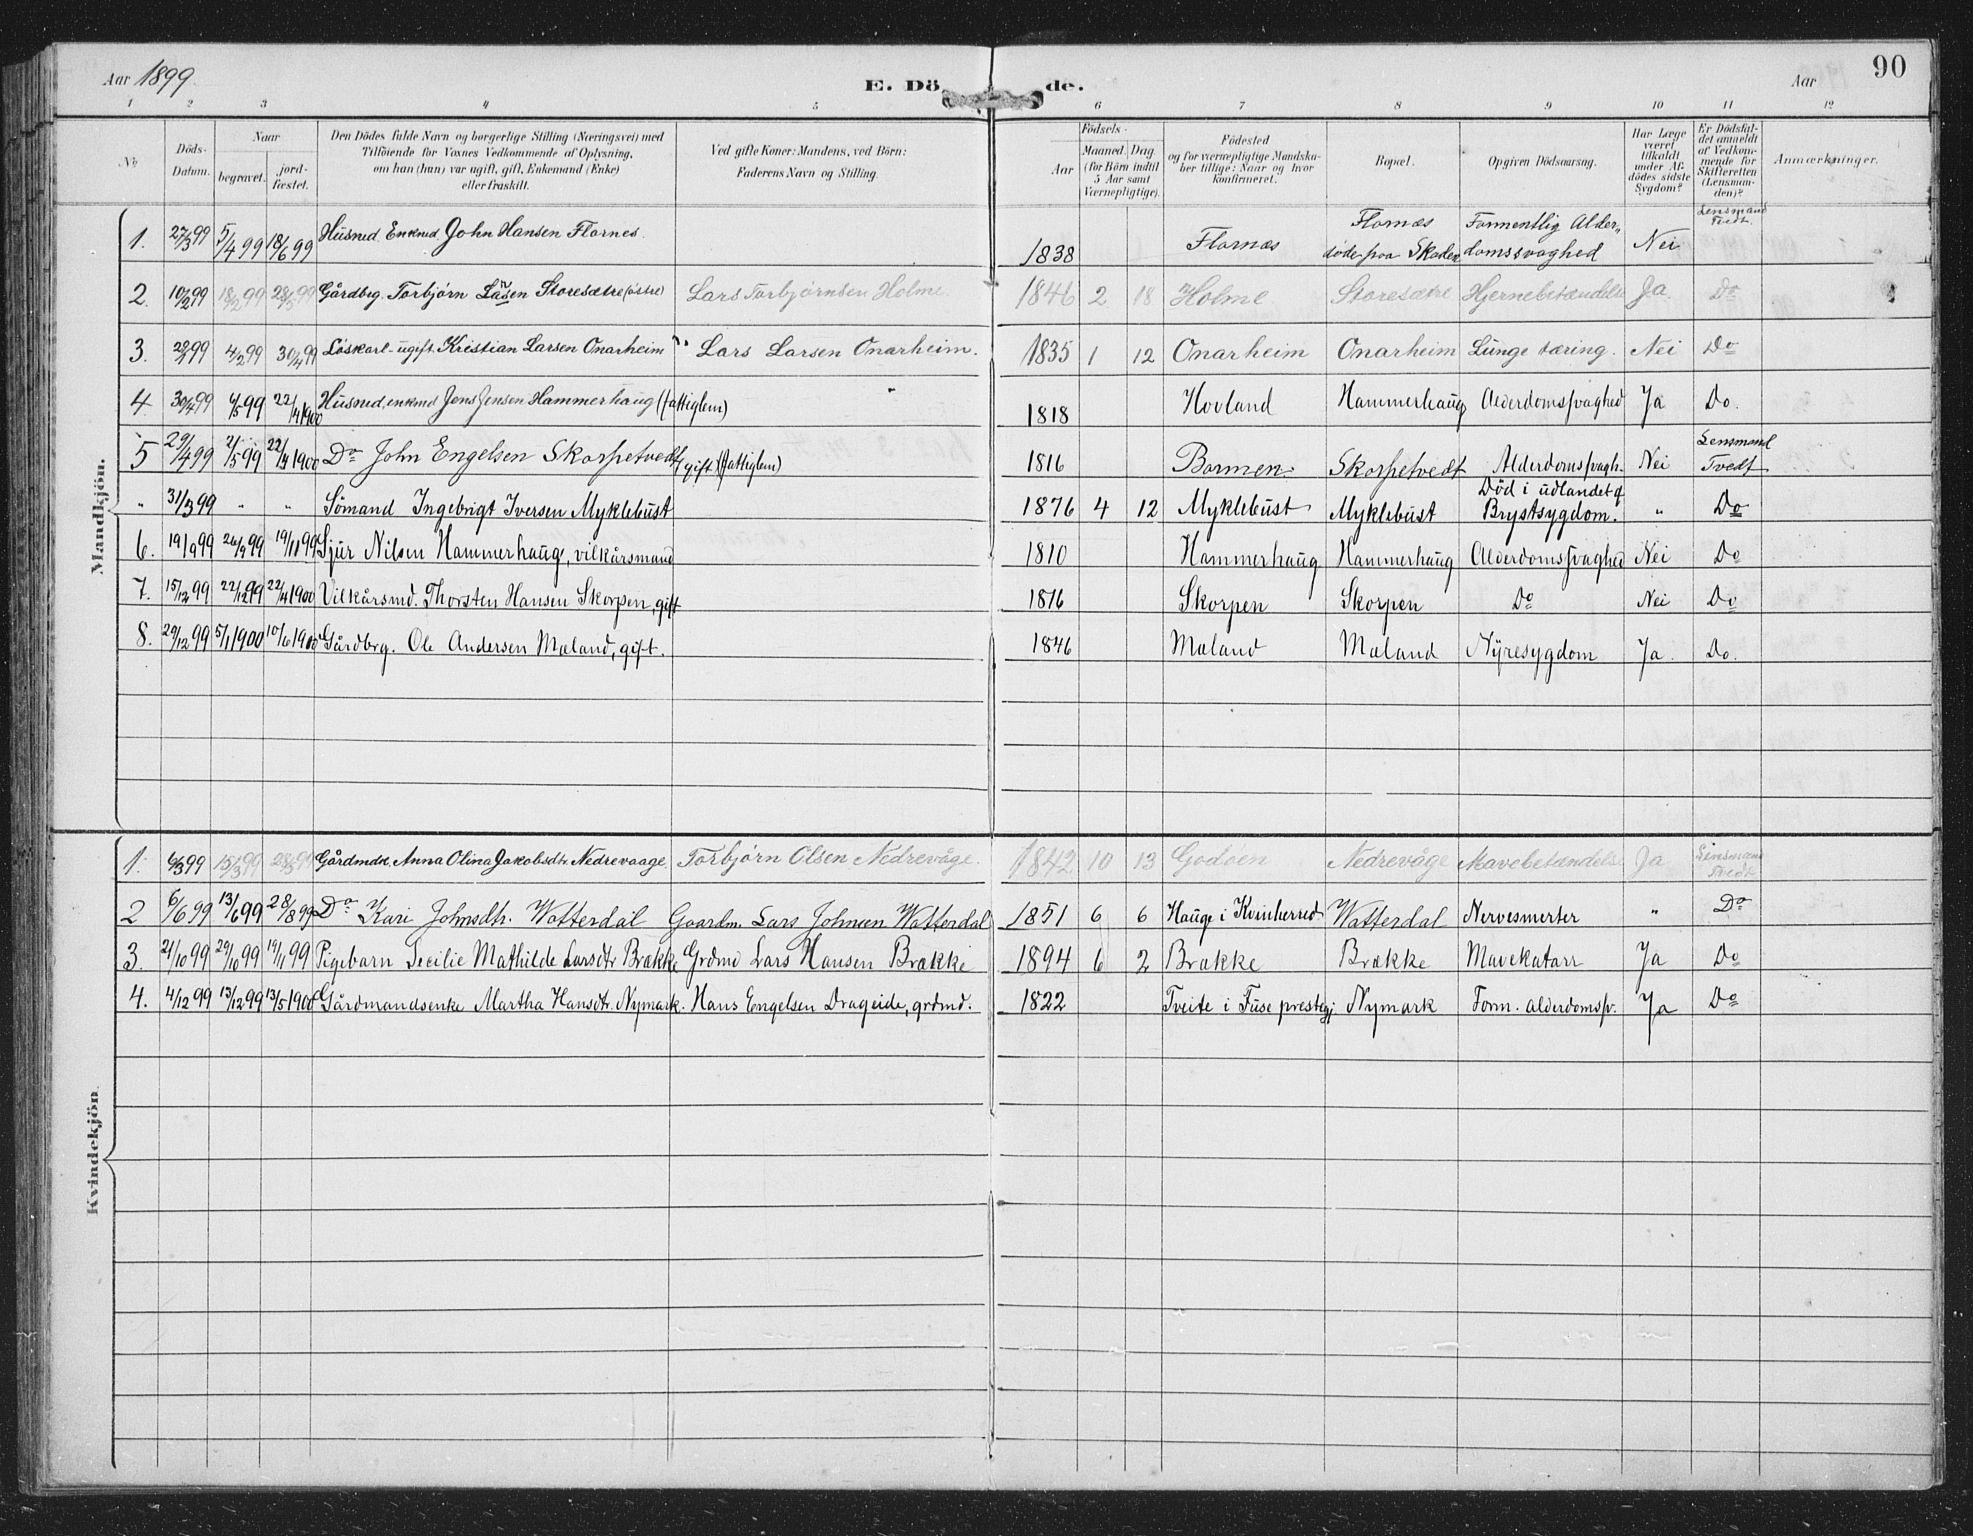 Aar 1899
E. Dö de.
Aar
90
1 2 3 4 5 6 7 8 9 10 11 12
No
Döds-Datum.
Naar
begravet.
jord-fæstet.
Den Dödes fulde Navn og borgerlige Stilling (Næringsvei) med
Tilföiende for Voxnes Vedkommende af Oplysning,
om han (hun) var ugift, gift, Enkemand (Enke)
eller fraskilt.
Ved gifte Koner: Mandens, ved Börn:
Faderens Navn og Stilling.
Födsels-
Aar
Maaned. Dag.
(for Börn indtil
5 Aar samt
Værnepligtige).
Födested
og for værnepligtige Mandska-
ber tillige: Naar og hvor
konfirmeret.
Bopæl.
Opgiven Dödsaarsag.
Har Læge
været
tilkaldt
under Af-
dödes sidste
Sygdom?
Er Dödsfal-
det anmeldt
af Vedkom-
mende for
Skifteretten
(Lensman-
den)?
Anmærkninger.
Mandkjön.
1. 27/3 99 5/4 99 18/6 99 Husmd. Enkmd John Hansen Flornes. 1838 Flornæs Flornæs döde paa Skaden Formentlig Alderdomssvaghed Nei Lensmand Tvedt.
2. 10/2 99 18/2 99 28/5 99 Gårdbrg. Torbjörn Lasen Storesætre (östre) Lars Torbjørnsen Holme 1846 2 18 Holme Storesætre Hjernebetændelse Ja. Do
3. 28/1 99 4/2 99 30/4 99 Löskarl ugift. Kristian Larsen Onarheim " Lars Larsen Onarheim. 1835 1 12 Onarheim Onarheim Lunge tæring. Nei Do
4. 30/4 99 6/5 99 22/4 1900 Husmd, enkmd Jens Jensen Hammerhaug (fattiglem) " 1818 Hovland Hammerhaug Alderdomssvaghed Ja Do.
5 29/4 99 2/5 99 22/4 1900 Do John Engelsen Skorpetvedt, gift (fattiglem) 1816 Bormen. Skorpetvedt Alderdomssvagh. Nei Lensmand Tvedt
" 31/3 99 " " Sömand Ingebrigt Iversen Myklebust 1876 4 12 Myklebust Myklebust Död i udlandet af Brystsygdom. " Do
6. 19/9 99 26/9 99 19/11 99 Sjur Nilsen Hammerhaug, vilkårsmand 1810 Hammerhaug Hammerhaug Alderdomssvaghed Nei Do
7. 15/12 99 22/12 99 22/4 1900 Vilkårsmd. Thorsten Hansen Skorpen, gift 1816 Skorpen Skorpen Do Nei Do
8. 29/12 99 5/1 1900 10/6 1900 Gårdbrg. Ole Andersen Mæland, gift. 1846 Mæland Mæland Nyresygdom Ja. Do.
Kvindekjön
1. 6/3 99 15/3 99 28/5 99 Gårdmdk. Anna Olina Jakobsdtr. Nedrevaage. Torbjørn Olsen Nedrevåge. 1842 10 13 Godöen Nedrevåge Mavebetændelse Ja Lensmand Tvedt
2 6/6 99 13/6 99 28/8 99 Do Kari Johnsdtr. Watterdal Gaardm. Lars Johnsen Watterdal 1851 6 6 Hauge i Kvinherred Watterdal Nervesmerter " Do
3. 21/10 99 29/10 99 19/11 99 Pigebarn Secilie Mathilde Larsdtr Brække Grdmd Lars Hansen Brække 1894 6 2 Brække Brække Mavekatarr Ja Do
4. 4/12 99 13/12 99 13/5 1900 Gårdmandsenke Martha Hansdtr. Nymark. Hans Engelsen Drageide, grdmd. 1822 Tveite i Fuse prestegj Nymark Form. alderdomssv. Ja Do